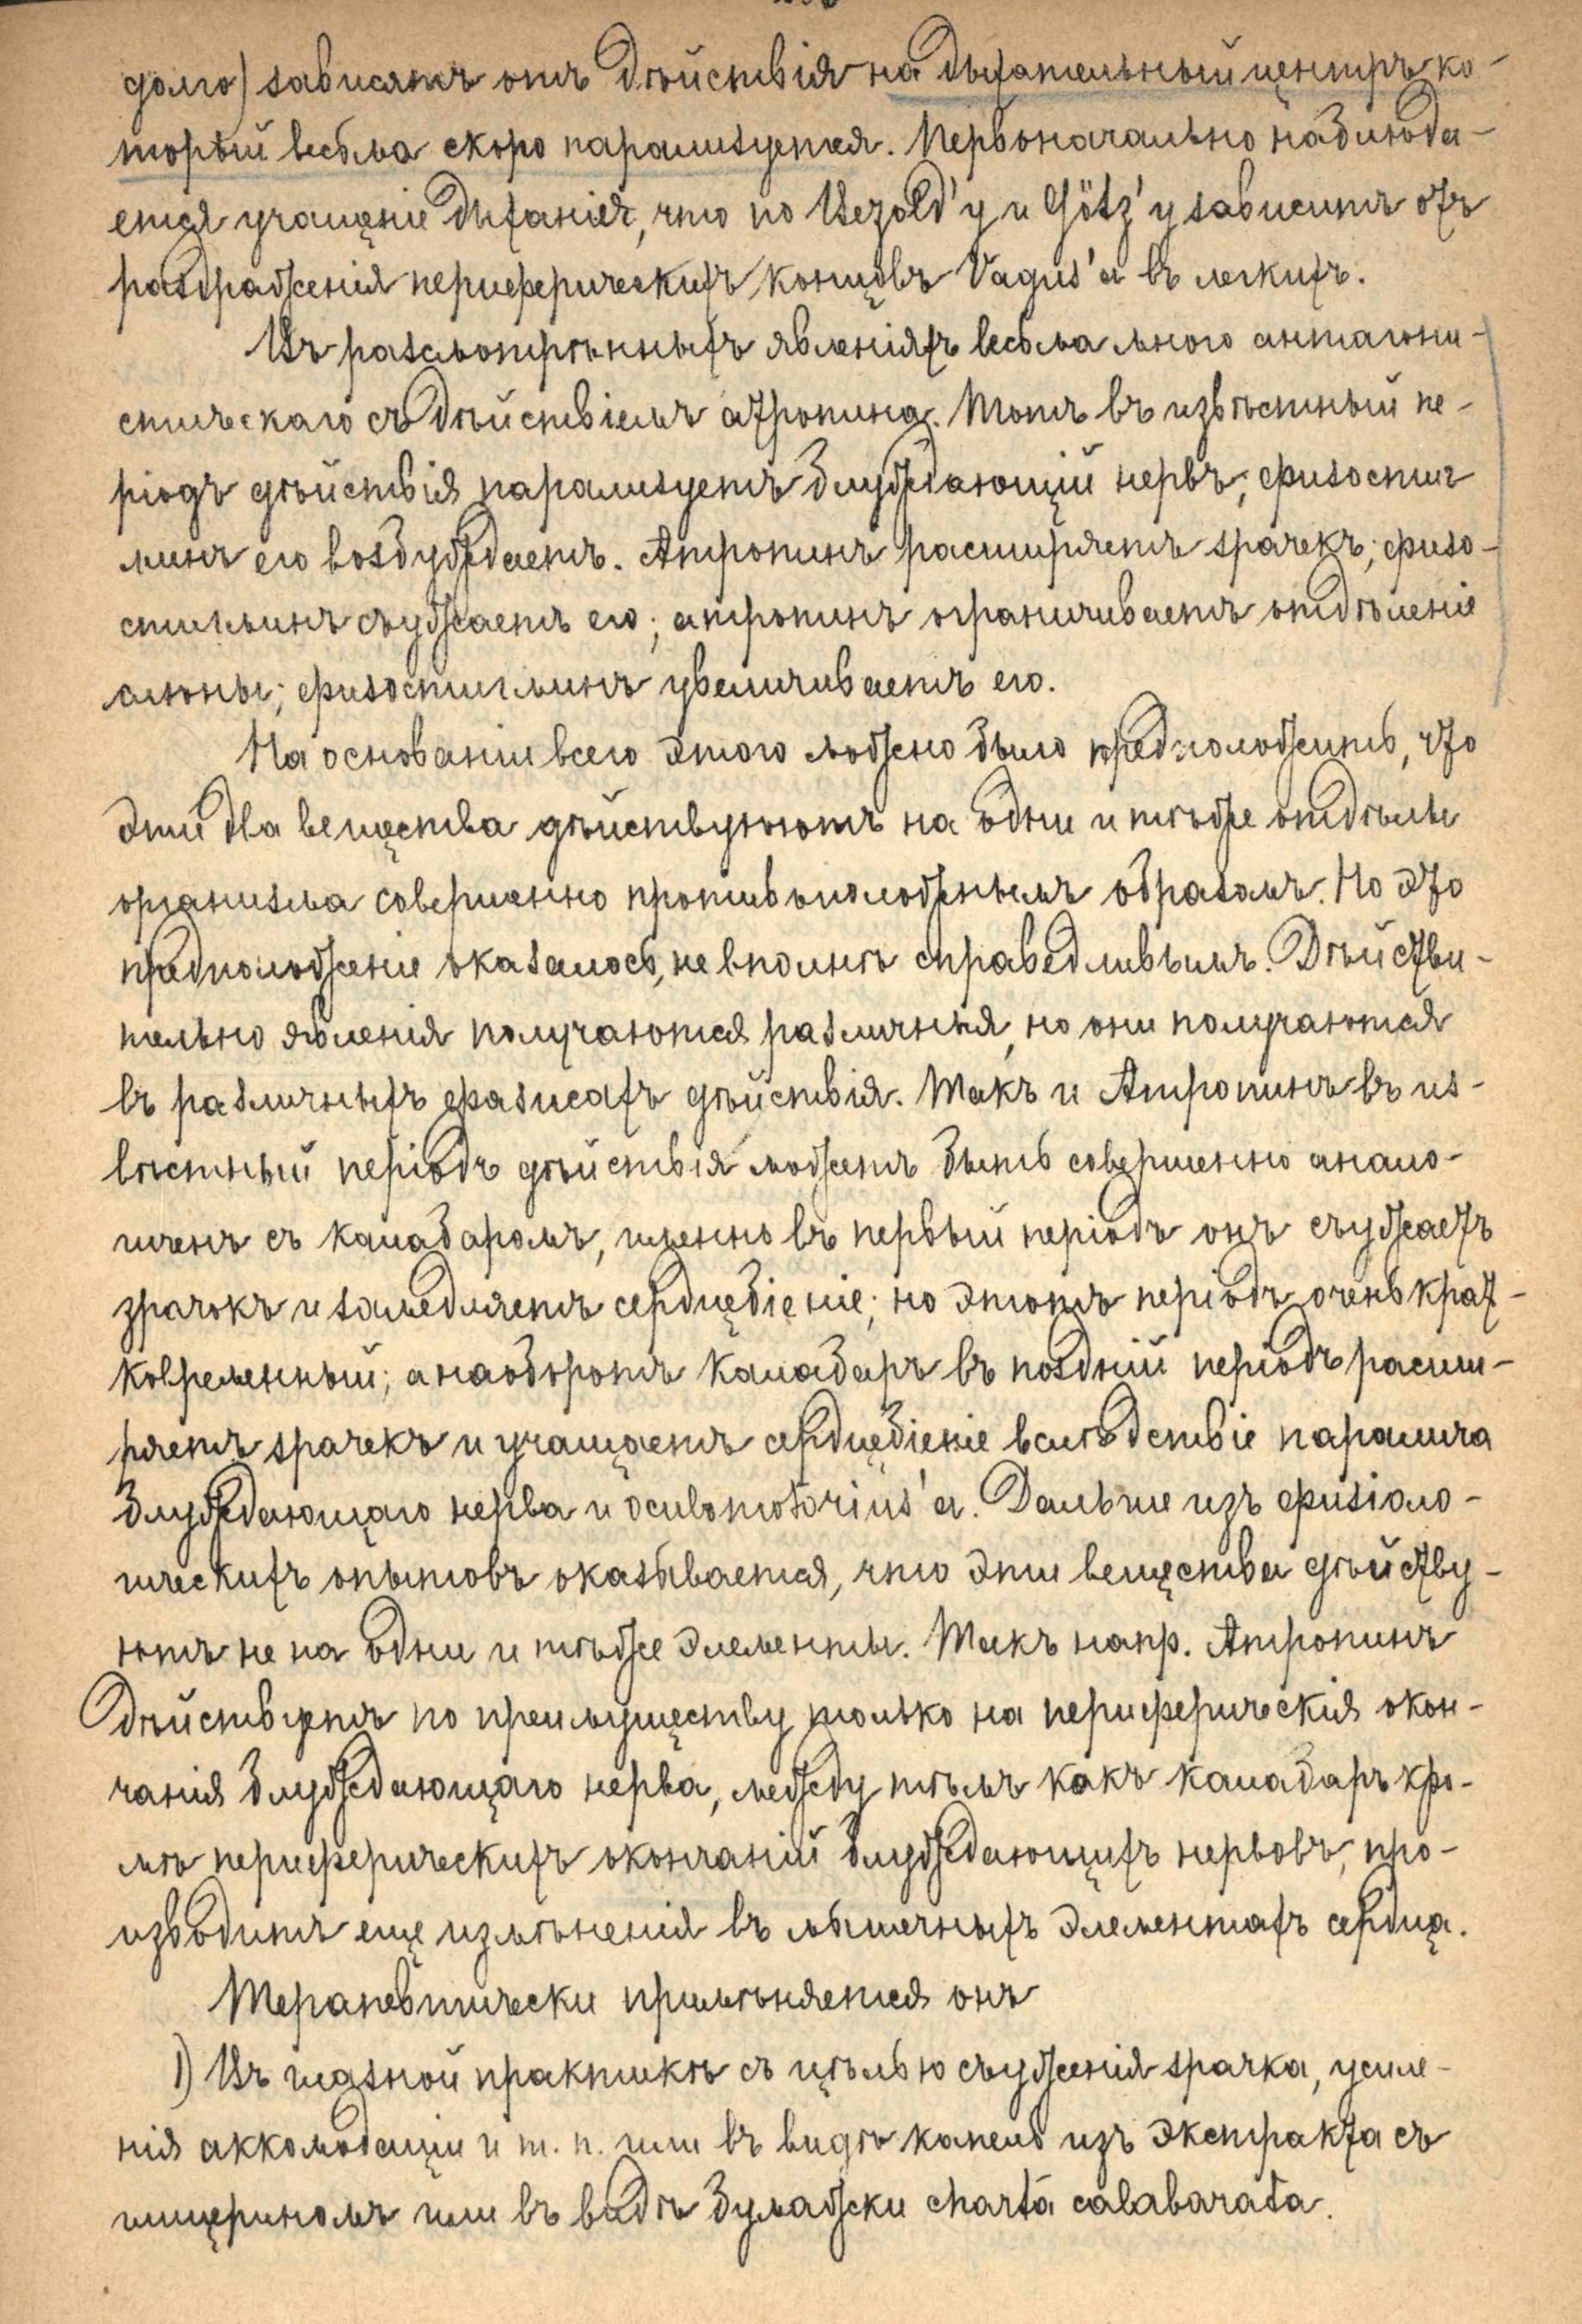 долго) зависятъ отъ дѣйствія на дыхательный центръ ко-
торый весьма скоро парализуется. Первоначально наблюда-
ется учащеніе дыханія, что по Bezold'у и Götz'у зависитъ отъ
раздраженія периферическихъ концовъ Vagus'а въ легкихъ.
Въ разсмотрѣнныхъ явленіяхъ весьма много антагони-
стическаго съ дѣйствіемъ атропина. Тотъ въ извѣстный пе-
ріодъ дѣйствія парализуетъ блуждающій нервъ; физостиг
минъ его возбуждаетъ. Атропинъ расширяетъ зрачекъ; физо-
стигминъ съуживаетъ его; атропинъ ограничиваетъ отдѣленіе
слюны; физостигминъ увеличиваетъ его.
На основаніи всего этого можно было предположить, что
эти два вещества дѣйствуютъ на одни и тѣже отдѣлы
организма совершенно противоположнымъ образомъ. Но это
предположеніе оказалось, не вполнѣ справедливымъ. Дѣйстви-
тельно явленія получаются различныя, но они получаются
въ различныхъ фазисахъ дѣйствія. Такъ и Атропинъ въ из-
вѣстный періодъ дѣйствія можетъ быть совершенно анало-
гиченъ съ калабаромъ, именно въ первый періодъ онъ съужаетъ
зрачокъ и замедляетъ сердцебіеніе; но этотъ періодъ очень крат-
ковременный; а наоборотъ калабаръ въ поздній періодъ расши-
ряетъ зрачекъ и учащаетъ сердцебіеніе вслѣдствіе паралича
блуждающаго нерва и oculomotorius'а. Дальше изъ физіоло-
гическихъ опытовъ оказывается, что эти вещества дѣйству-
ютъ не на одни и тѣже элементы. Такъ напр. Атропинъ
дѣйствуетъ по преимуществу только на периферическія окон-
чанія блуждающаго нерва, между тѣмъ какъ калабаръ кро-
мѣ периферическихъ окончаній блуждающихъ нервовъ, про-
изводитъ еще измѣненія въ мышечныхъ элементахъ сердца.
Терапевтически примѣняется онъ
1) Въ глазной практикѣ съ цѣлью съуженія зрачка, усиле-
нія аккомодаціи и т. п. или въ видѣ капель изъ экстракта съ
глицериномъ или въ видѣ бумажки charta calabarata.